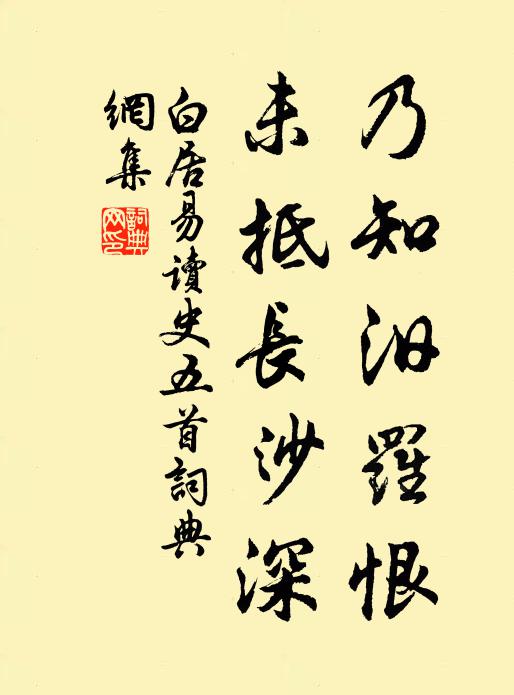 乃知汨羅恨
未抵長沙深
白居易讀史五首詞典
網集
詞典
网印